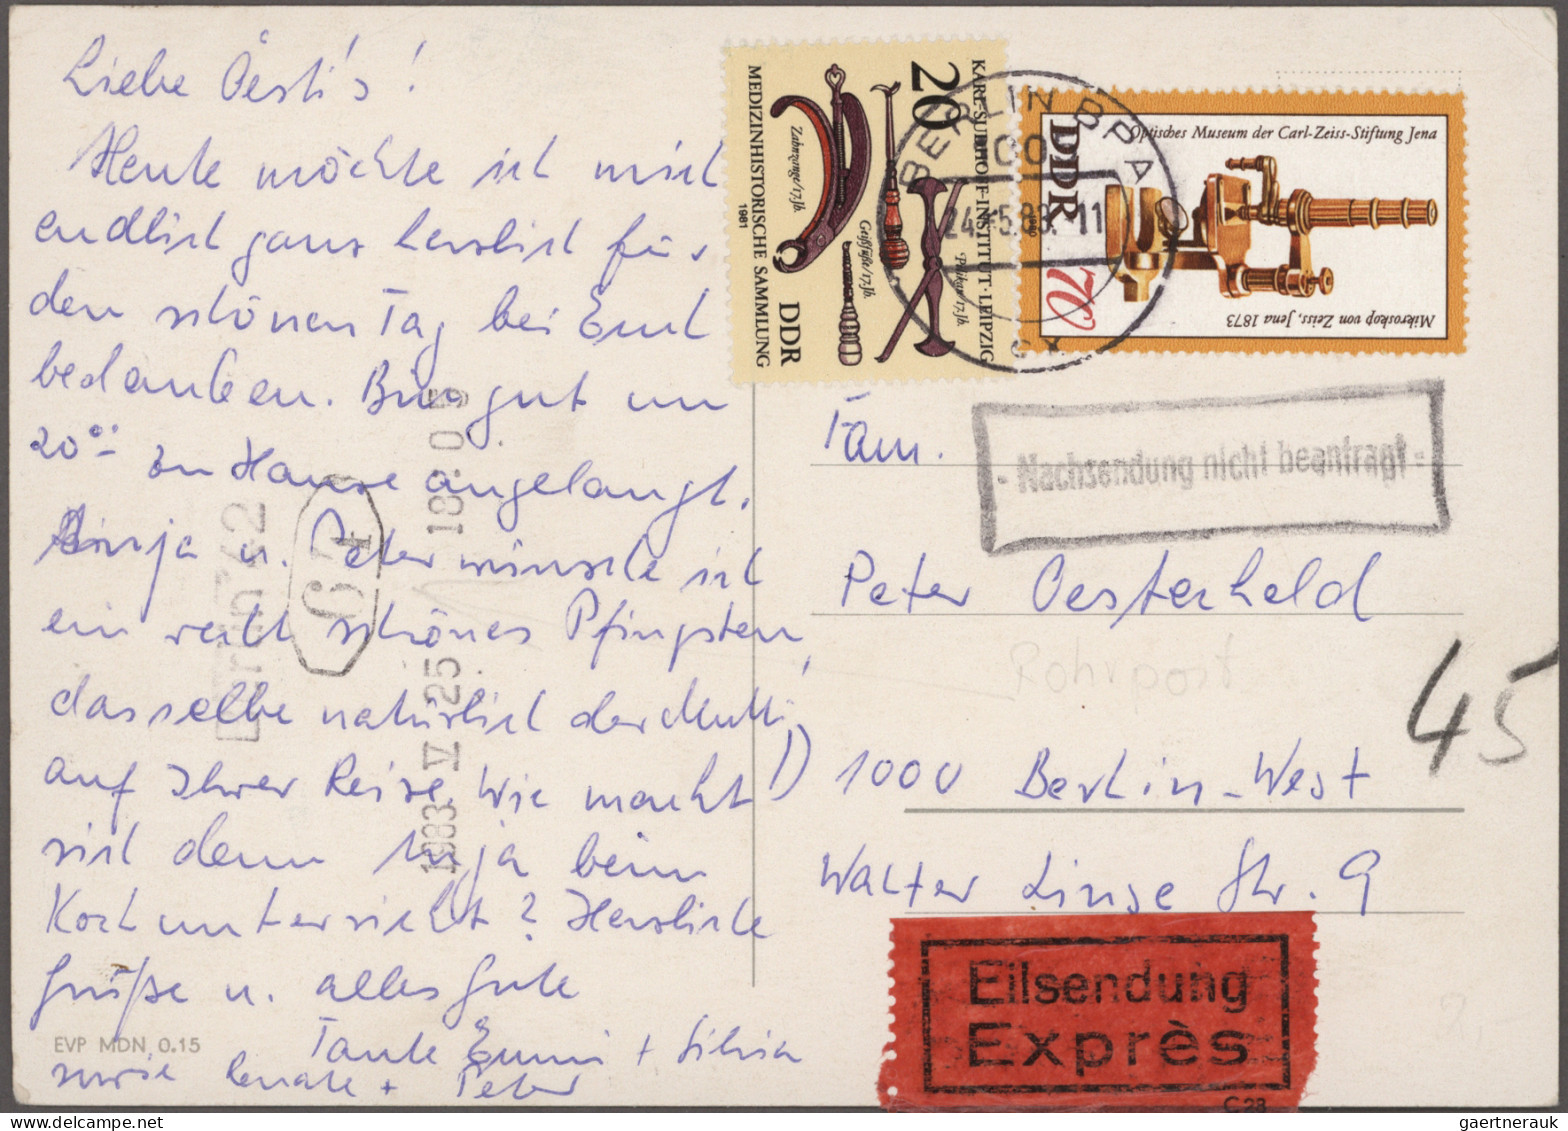 Liebe Oesti's!
Heute möchte ich mich
endlich ganz herzlich für
den schönen Tag bei Euch
bedanken. Bin gut um
20°° zu Hause angelangt.
u. Peter wünsche ich
ein recht schönes Pfingsten,
dasselbe natürlich der Mutti
auf Ihrer Reise. Wie macht
sich denn Anja beim
Kochunterricht? Herzliche
Grüße u. alles Gute
Tante Emmi + Silvia
sowie Renate + Peter
EVP MDN 0.15
Berlin 42
67
1983 V 25 18:05
KARL-SUDHOFF-INSTITUT · LEIPZIG
20
Zahnzange/17.Jh.
Geißfüße/17.Jh.
Pelikan/17.Jh.
MEDIZINHISTORISCHE SAMMLUNG
DDR
1981
BERLIN BPA
24.-5.83.-11
Optisches Museum der Carl-Zeiss-Stiftung Jena
DDR
1980
70
Mikroskop von Zeiss, Jena 1873
- Nachsendung nicht beantragt -
Fam.
Peter Oesterheld
Rohrpost
45
1) 1000 Berlin-West
Walter Linse Str. 9
Eilsendung
Exprès
C 28
gaertnerauk